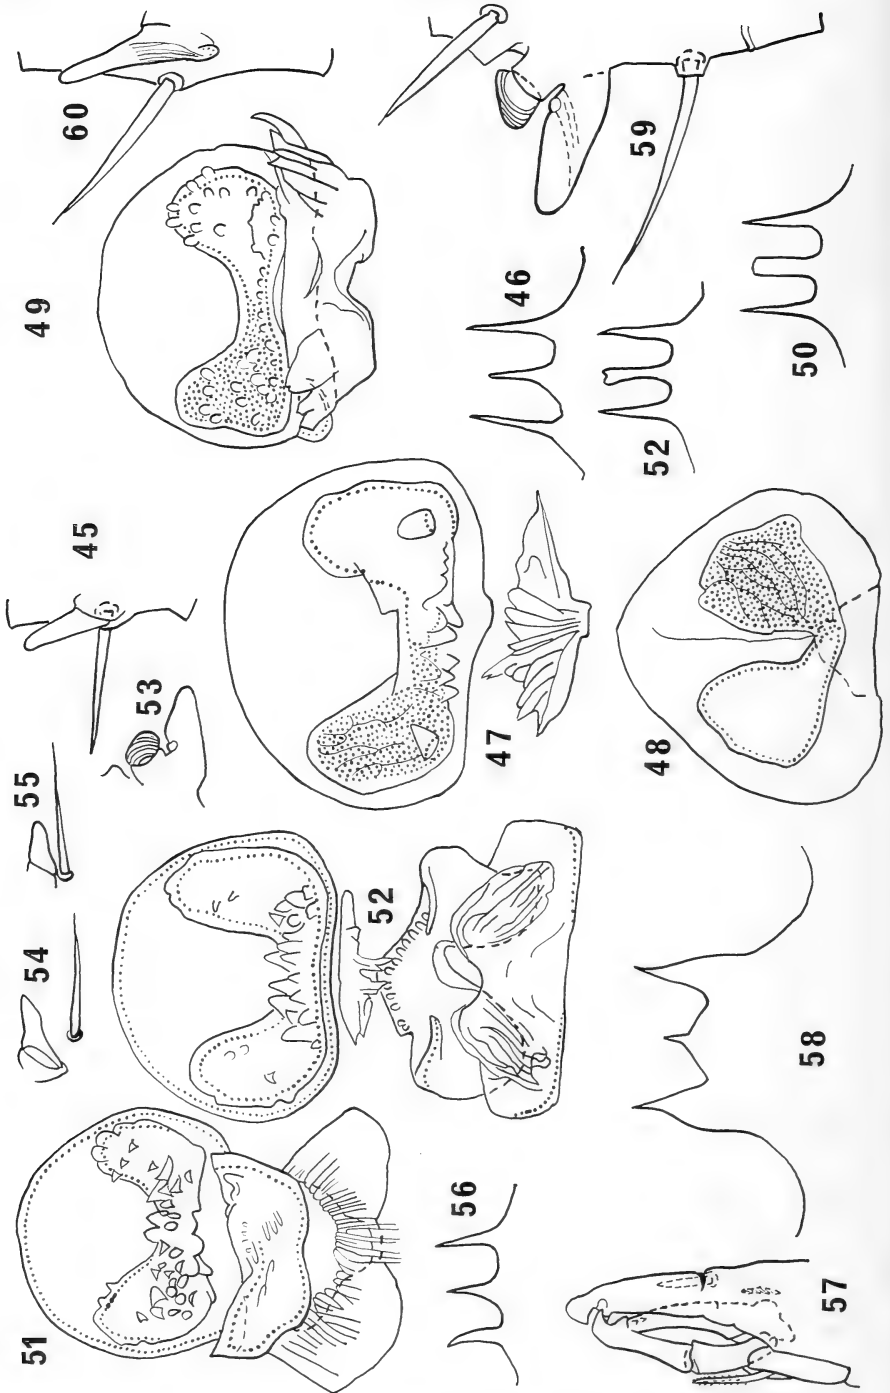 60
59
49
46
50
52
45
53
55
47
48
54
52
58
51
56
57